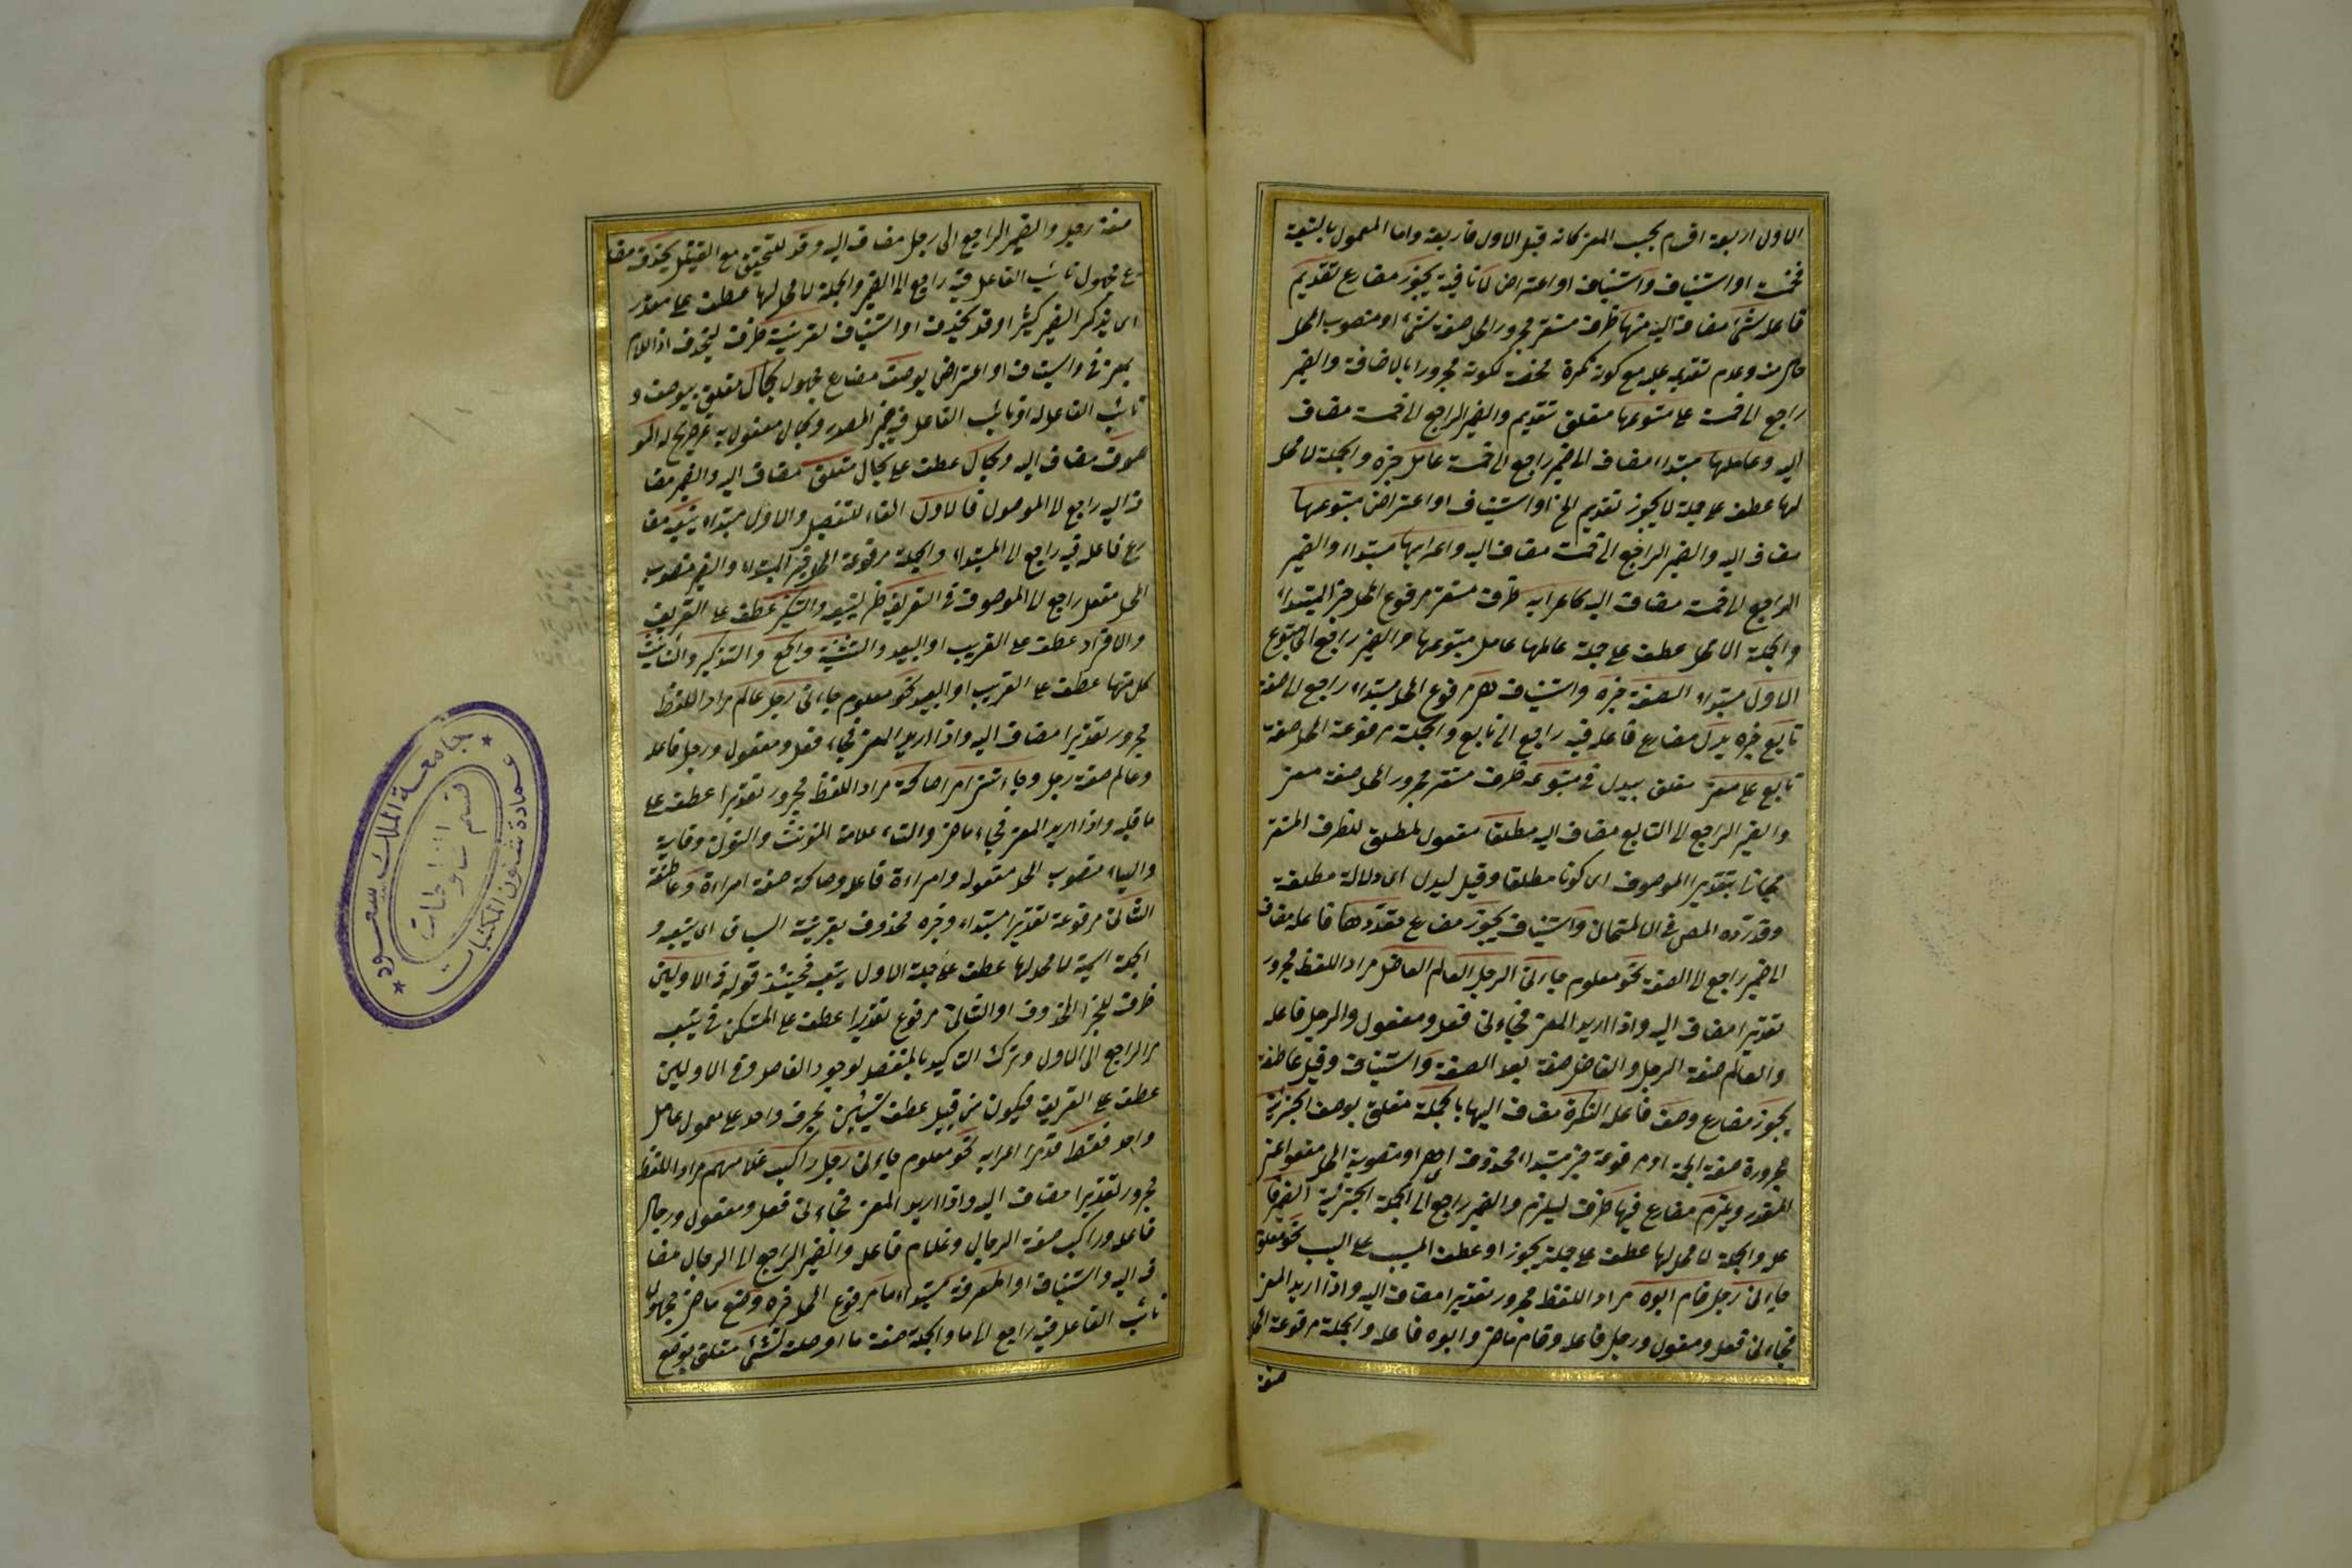 الاول اربعة اقسام بحسب المعنى كانه قيل الاول فاربعة واما المعمول بالتبعية
فخمسة او استيناف واستيناف او اعتراض لا نافية يجوز مضارع تقديم
فاعله شئ مضاف اليه منها ظرف مستقر مجرور المحل صفة شئ او منصوب المحل
حال منه وعدم تقديمه عليه مع كونه نكرة محضة لكونه مجرورا بالاضافة والضمير
راجع الى خمسة على متبوعها متعلق تقديم والضمير الراجع الى خمسة مضاف
اليه وعاملها مبتداء مضاف الى ضمير راجع الى خمسة عامل خبره والجملة لا محل
لها عطف على جملة لا يجوز تقديم الخ او استيناف او اعتراض متبوعها
مضاف اليه والضمير الراجع الى خمسة مضاف اليه واعرابها مبتداء والضمير
الراجع الى خمسة مضاف اليه كاعرابه ظرف مستقر مرفوع المحل خبر المبتداء
والجملة لا محل عطف على جملة عاملها عامل متبوعها والضمير راجع الى متبوع
الاول مبتداء الصفة خبره واستيناف هى مرفوع المحل مبتداء راجع الى صفة
تابع خبره يدل مضارع فاعله فيه راجع الى تابع والجملة مرفوعة المحل صفة
تابع على معنى متعلق بيدل فى متبوعه ظرف مستقر مجرور المحل صفة معنى
والضمير الراجع الى التابع مضاف اليه مطلقا مفعول مطلق للظرف المستقر
مجازا بتقدير الموصوف اى كونا مطلقا وقيل ليدل اى دلالة مطلقة
وقد رده المص فى الامتحان واستيناف يجوز مضارع تعددها فاعله مضاف
الى ضمير راجع الى الصفة نحو معلوم جاءنى الرجل العالم الفاضل مراد اللفظ مجرور
تقديرا مضاف اليه واذا اريد المعنى فجاءنى فعل ومفعول والرجل فاعله
والعالم صفة الرجل والفاضل صفة بعد الصفة واستيناف وقيل عاطفة
يجوز مضارع وصف فاعله النكرة مضاف اليها بالجملة متعلق بوصف الخبرية
مجرورة صفة الجملة او مرفوعة خبر مبتداء محذوف اى هى او منصوبة المحل مفعول اعنى
المقدر ويلزم مضارع فيها ظرف ليلزم والضمير راجع الى الجملة الخبرية الضمير فا
عله والجملة لا محل لها عطف على جملة يجوز او عطف المسبب على السبب نحو معلوم
جاءنى رجل قام ابوه مراد اللفظ مجرور تقديرا مضاف اليه واذا اريد المعنى
فجاءنى فعل ومفعول ورجل فاعله وقام ماض وابوه فاعله والجملة مرفوعة المحل
صفة
صفة رجل والضمير الراجع الى رجل مضاف اليه وقد للتحقيق مع التقليل يحذف مضا
رع مجهول نائب الفاعل فيه راجع الى الضمير والجملة لا محل لها عطف على مقدر
اى يذكر الضمير كثيرا وقد يحذف او استيناف لقرينة ظرف ليحذف اذ اللام
بمعنى فى واستيناف او اعتراض يوصف مضارع مجهول بحال متعلق بيوصف و
نائب الفاعل له او نائب الفاعل فيه ضمير المصدر وبحال مفعول به غير صريح له المو
صوف مضاف اليه وبحال عطف على بحال متعلق مضاف اليه والضمير مضا
ف اليه راجع الى الموصول فالاول الفاء للتفصيل والاول مبتداء يتبعه مضا
رع فاعله فيه راجع الى المبتداء والجملة مرفوعة المحل خبر المبتداء والضمير منصوب
المحل مفعول راجع الى الموصوف فى التعريف ظرف ليتبعه والتنكير عطف على التعريف
والافراد عطف على القريب او البعيد والتثنية والجمع والتذكير والتأنيث
كل منها عطف على القريب او البعيد نحو معلوم جاءنى رجل عالم مراد اللفظ
مجرور تقديرا مضاف اليه واذا اريد المعنى فجاء فعل ومفعول ورجل فاعله
وعالم صفة رجل وجاءتنى امراة صالحة مراد اللفظ مجرور تقديرا عطف على
ما قبله واذا اريد المعنى فجاء ماض والتاء علامة المؤنث والنون وقاية
والياء منصوب المحل مفعوله وامراءة فاعله وصالحة صفة امراءة وعاطفة
الثانى مرفوعة تقديرا مبتداء وخبره محذوف بقرينة السباق اى يتبعه و
الجملة اسمية لا محل لها عطف على جملة الاول يتبعه فحينئذ قوله فى الاولين
ظرف للخبر المحذوف او الثانى مرفوع تقديرا عطف على المستكن فى يتبعه
الراجع الى الاول وترك التاكيد بالمنفصل لوجود الفاصل وفى الاولين
عطف على التعريف فيكون من قبيل عطف شيئين بحرف واحد على معمولى عامل
واحد فقط قد مر اعرابه نحو معلوم جاءنى رجل راكب غلامهم مراد اللفظ
مجرور تقديرا مضاف اليه واذا اريد المعنى فجاءنى فعل ومفعول ورجال
فاعله وراكب صفة الرجال وغلام فاعله والضمير الراجع الى الرجال مضا
ف اليه واستيناف او المعرفة مبتداء ما مرفوع المحل خبره وضع ماض مجهول
نائب الفاعل فيه راجع الى ما والجملة صفة ما او صلة لشئ متعلق بوضع
جامعة الملك سعود
عمادة شئون المكتبات
قسم المخطوطات